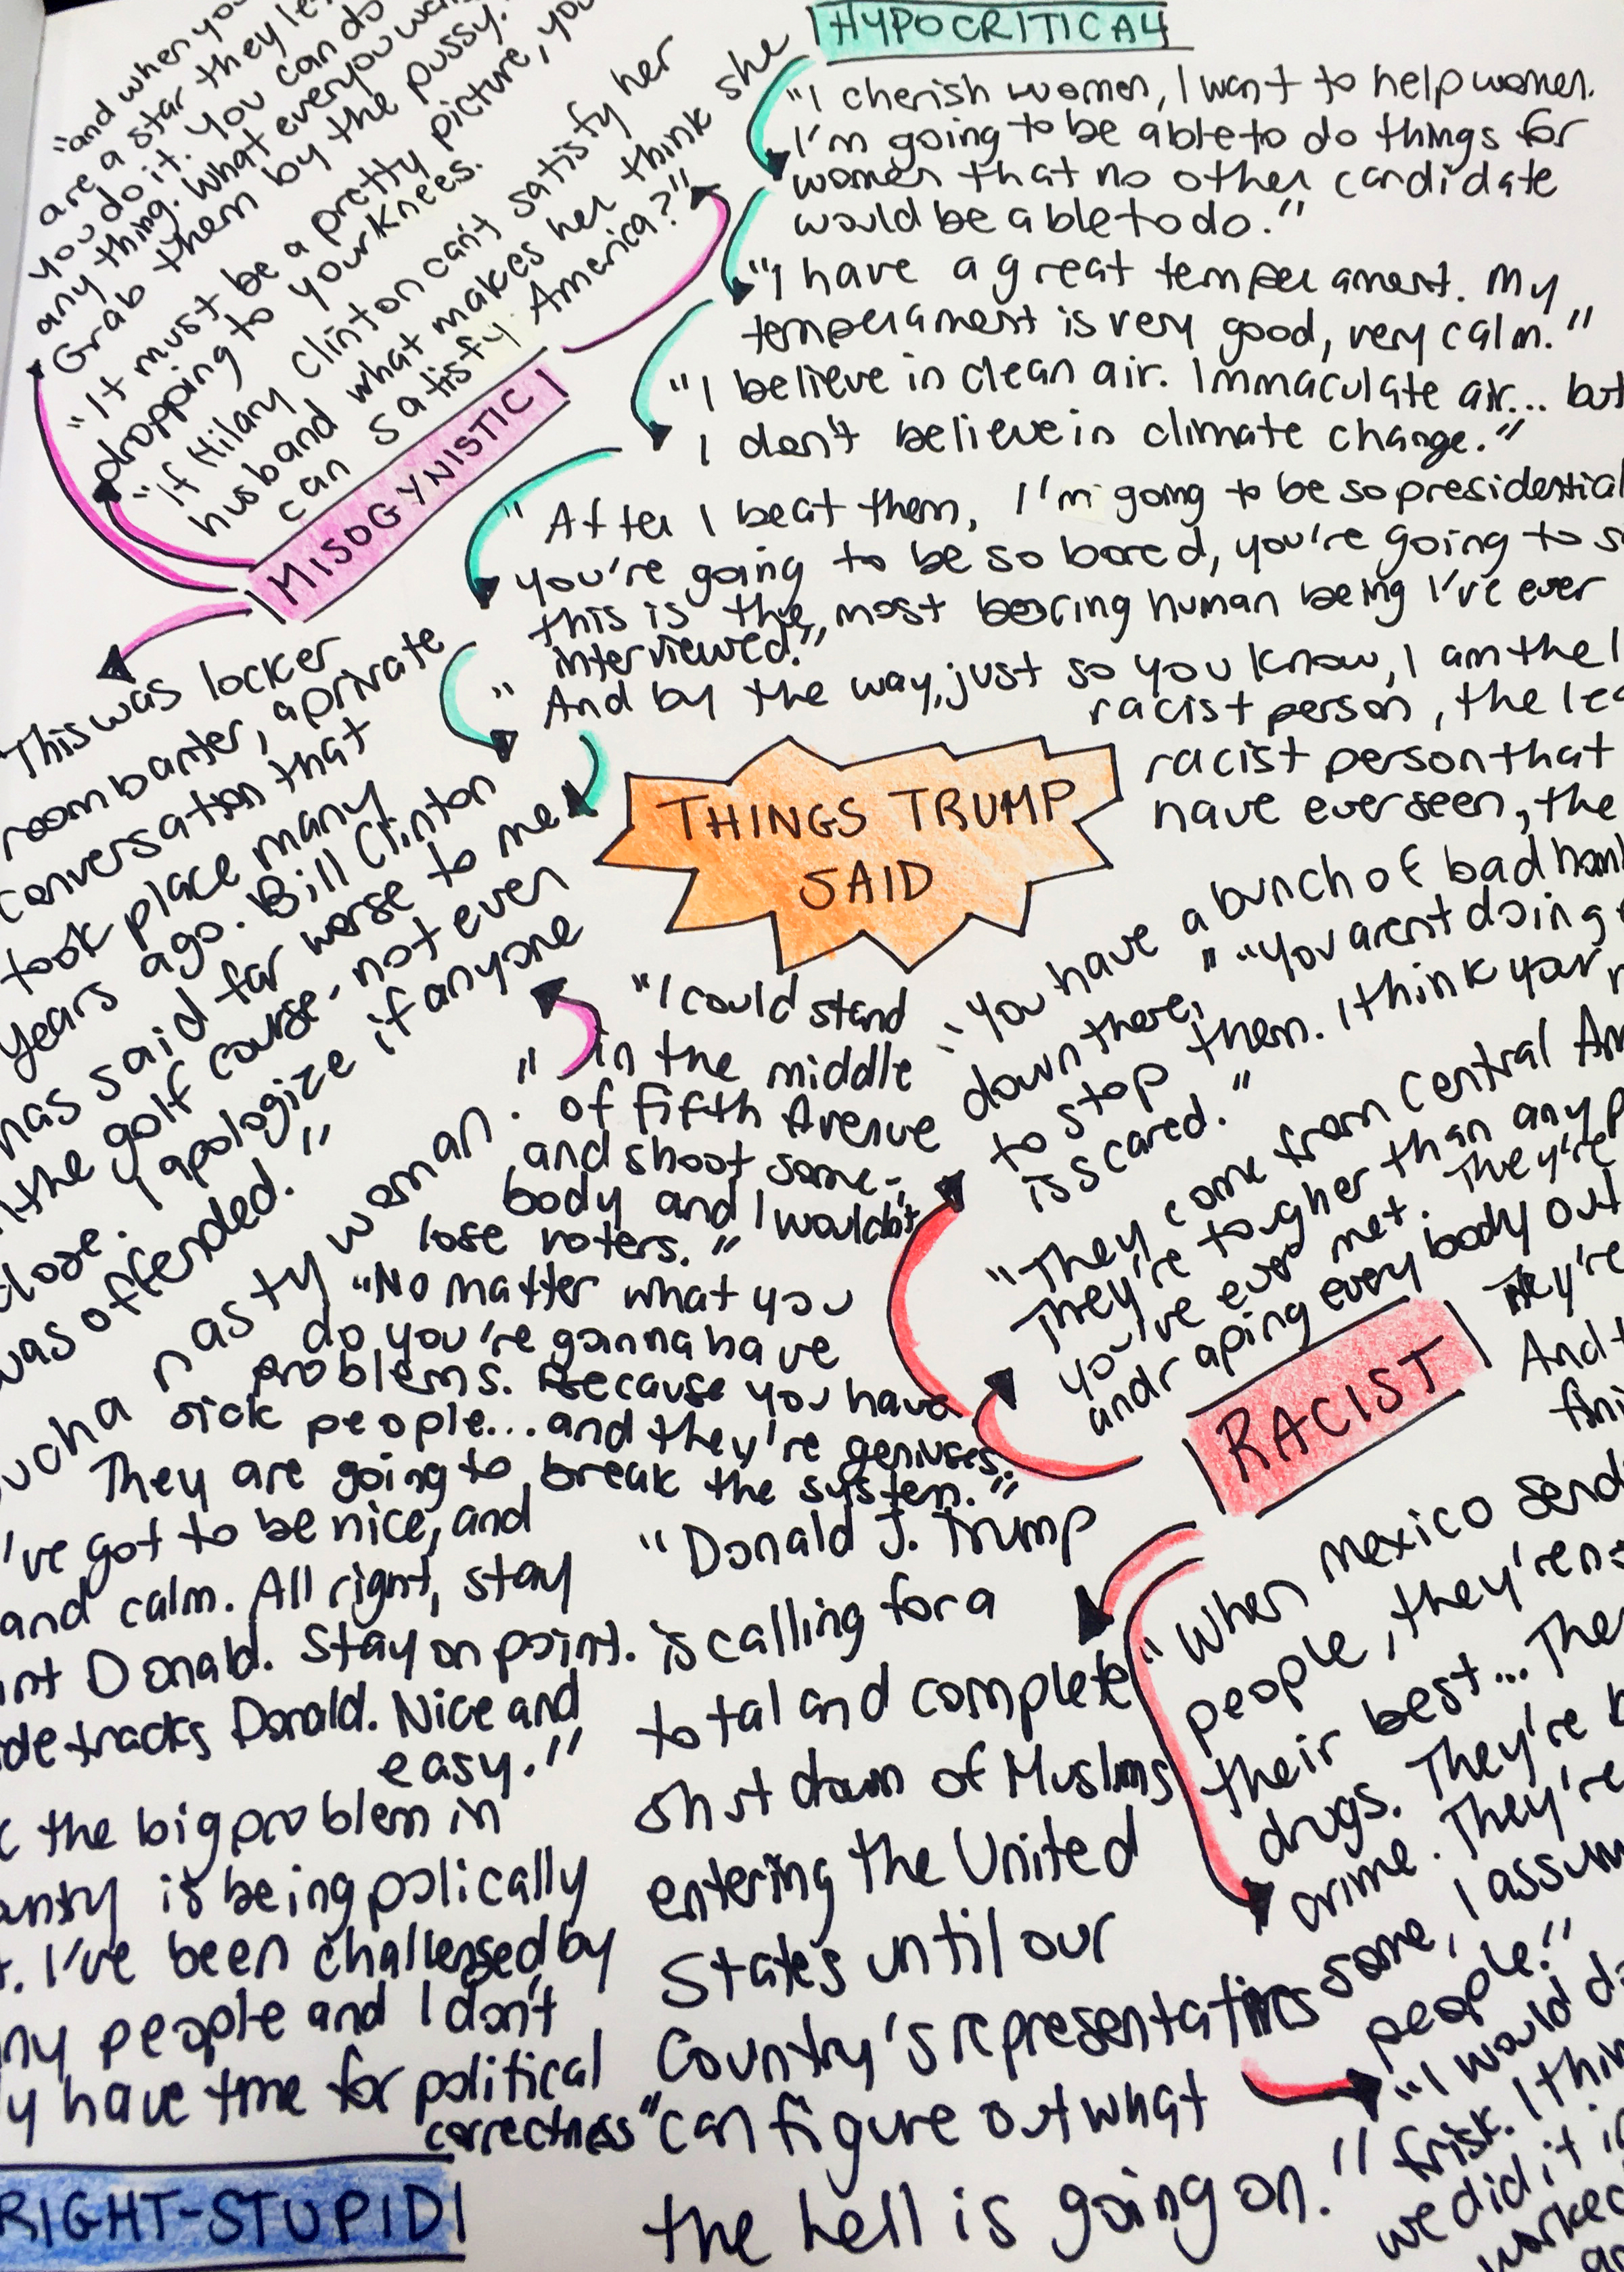 HYPOCRITICAL
"I cherish women, I want to help women.
I'm going to be able to do things for
women that no other candidate
would be able to do."
"I have a great temperament. My
temperament is very good, very calm."
"I believe in clean air. Immaculate air... but
I don't believe in climate change."
"After I beat them, I'm going to be so presidential
you're going to be so bored, you're going to
this is the most boring human being I've ever
interviewed."
" And by the way, just so you know, I am the
racist person, the
racist person that
have ever seen, the
"and when you
are a star they
you do it. You can do
any thing. What ever you
Grab them by the pussy."
"It must be a pretty picture, you
dropping to your knees.
"If Hilary Clinton can't satisfy her
husband what makes her think she
can satisfy America?"
MISOGYNISTIC
This was locker
room banter, a private
conversation that
took place many
years ago. Bill Clinton
has said far worse to me
the golf course - not even
close. I apologize if anyone
was offended."
nasty woman."
THINGS TRUMP
SAID
"I could stand
in the middle
of fifth Avenue
and shoot some-
body and I wouldn't
lose voters."
"No matter what you
do you're gonna have
problems. Because you have
sick people... and they're geniuses.
They are going to break the system."
I've got to be nice, and
and calm. All right, stay
Donald. Stay on point.
Donald. Nice and
easy."
the big problem in
is being polically
I've been challenged by
people and I don't
have time for political
correctness"
RIGHT-STUPID
"Donald J. Trump
is calling for a
total and complete
shut down of Muslims
entering the United
States until our
Country's representatives
can figure out what
the hell is going on."
"You have a bunch of bad
down there." "You aren't doing
to stop them. I think your
is scared."
"They come from Central
They're tougher than any
you've ever met. They're
and raping every body out
They're
And
RACIST
"When Mexico
people, they're
their best...
drugs. They're
crime. They're
some, I
people."
"I would
frisk. I
we did it